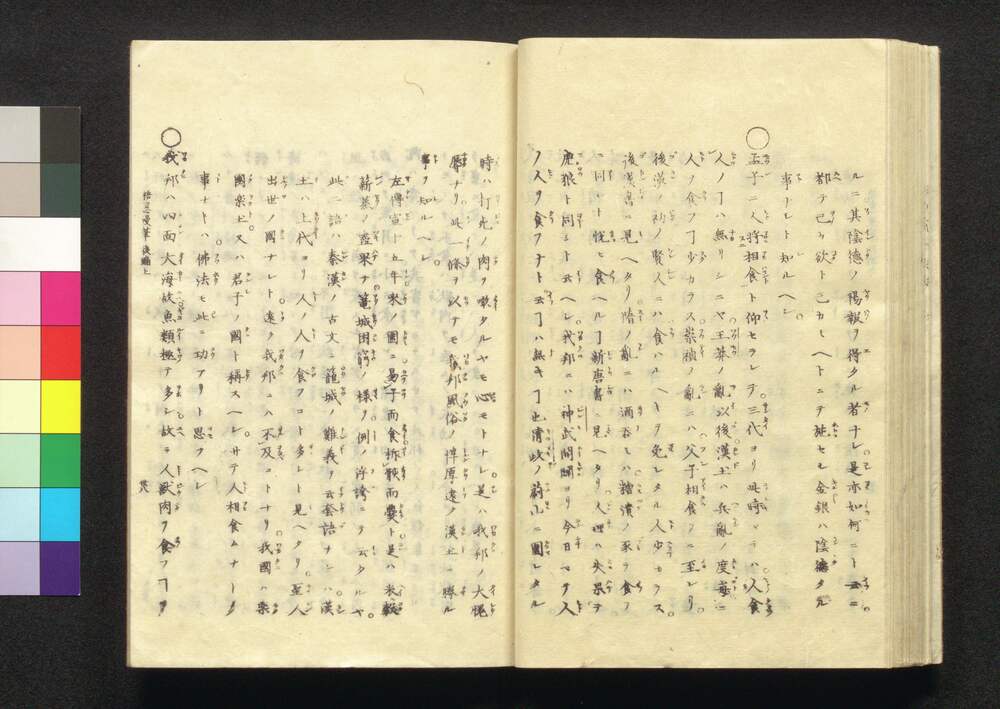 ルニ其陰徳ノ陽報ヲ得タル者ナレ。是亦如何ニト云ニ
都テ己ヲ欲ト己カシヘトニテ施セモ金銀ハ陰徳タル
事ナヒト知ルヘシ
○孟子ニ人将相食ト仰セラレテ三代ヨリ其時マテハ人食
人ノ丁ハ無リシニヤ王莽ノ亂以後漢土ハ兵亂ノ度毎ニ
人人ヲ食フ丁少カラス崇禎ノ亂ニハ父子相食ニ至レリ
後漢ノ初ノ賢人ニハ食ハルヘトヲ免レタル人少カラス
後漢書ニ見ヘタリ隋ノ亂ニハ酒吞モハ諸漬ノ豕ヲ食フ
ニ同シト悦ヒ食ヘル丁新唐書ニ見ヘタリ人理ハ失果テ
虎狼ト同シト云ヘシ我邦ニハ神武開闢ヨリ今日マテ人
ノ人ヲ食フナト云丁ハ無キ丁也清政ノ蔚山ニ圍レタル
時ハ打死ノ肉ヲ噉タルヤモ心モトナレ。是ハ我邦ノ大恥
辱ナリ此一條ヲ以テモ我邦風俗ノ惇厚遠ク漢土ニ勝ル
事ヲ知ルヘシ。
左傳宣十五年宋ノ圍ニ易子而食析骸而爨ト是ハ
薪蒸ノ盡果テ篭城困窮ノ様ノ例ノ浮誇ニテ云タルヤ
此二語ハ秦漢ノ古文ニ籠城ノ難義ヲ云套語ナレハ漢
土ハ上代ヨリ人ノ人ヲ食フコト多シト見ヘタリ至人
出世ノ國ナレト遠ク我邦ニハ不及コトナリ我國ハ樂
國樂土又ハ君子ノ國ト稱スヘレ。サテ人相食ムナキ
事ナトハ佛法モ此ニ功アリト思フヘレ
○我邦ハ四面大海故魚類極テ多シ故ニ人獣肉ヲ食フコトヲ
梧窓漫筆後編上